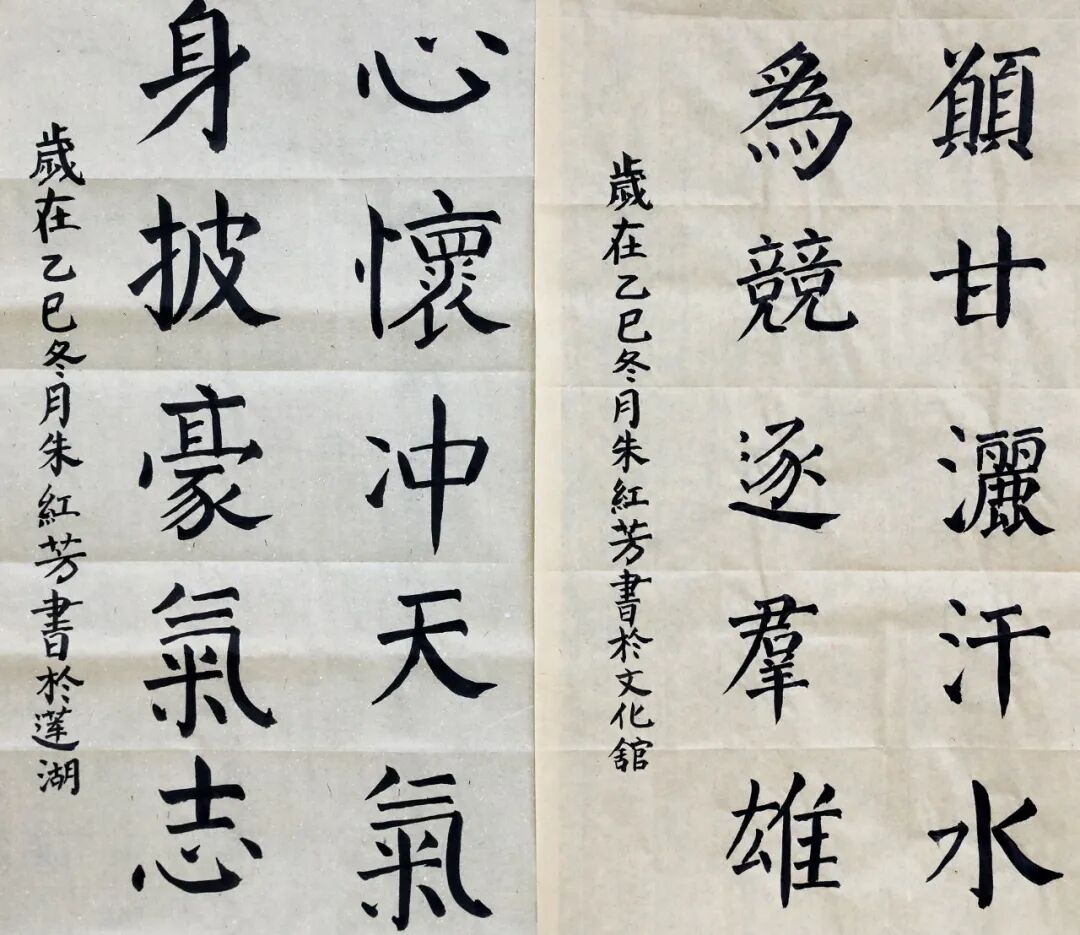 願甘灑汗水
爲競逐羣雄
歲在乙巳冬月朱紅芳書於文化舘
心懷冲天氣
身披豪氣志
歲在乙巳冬月朱紅芳書於蓮湖